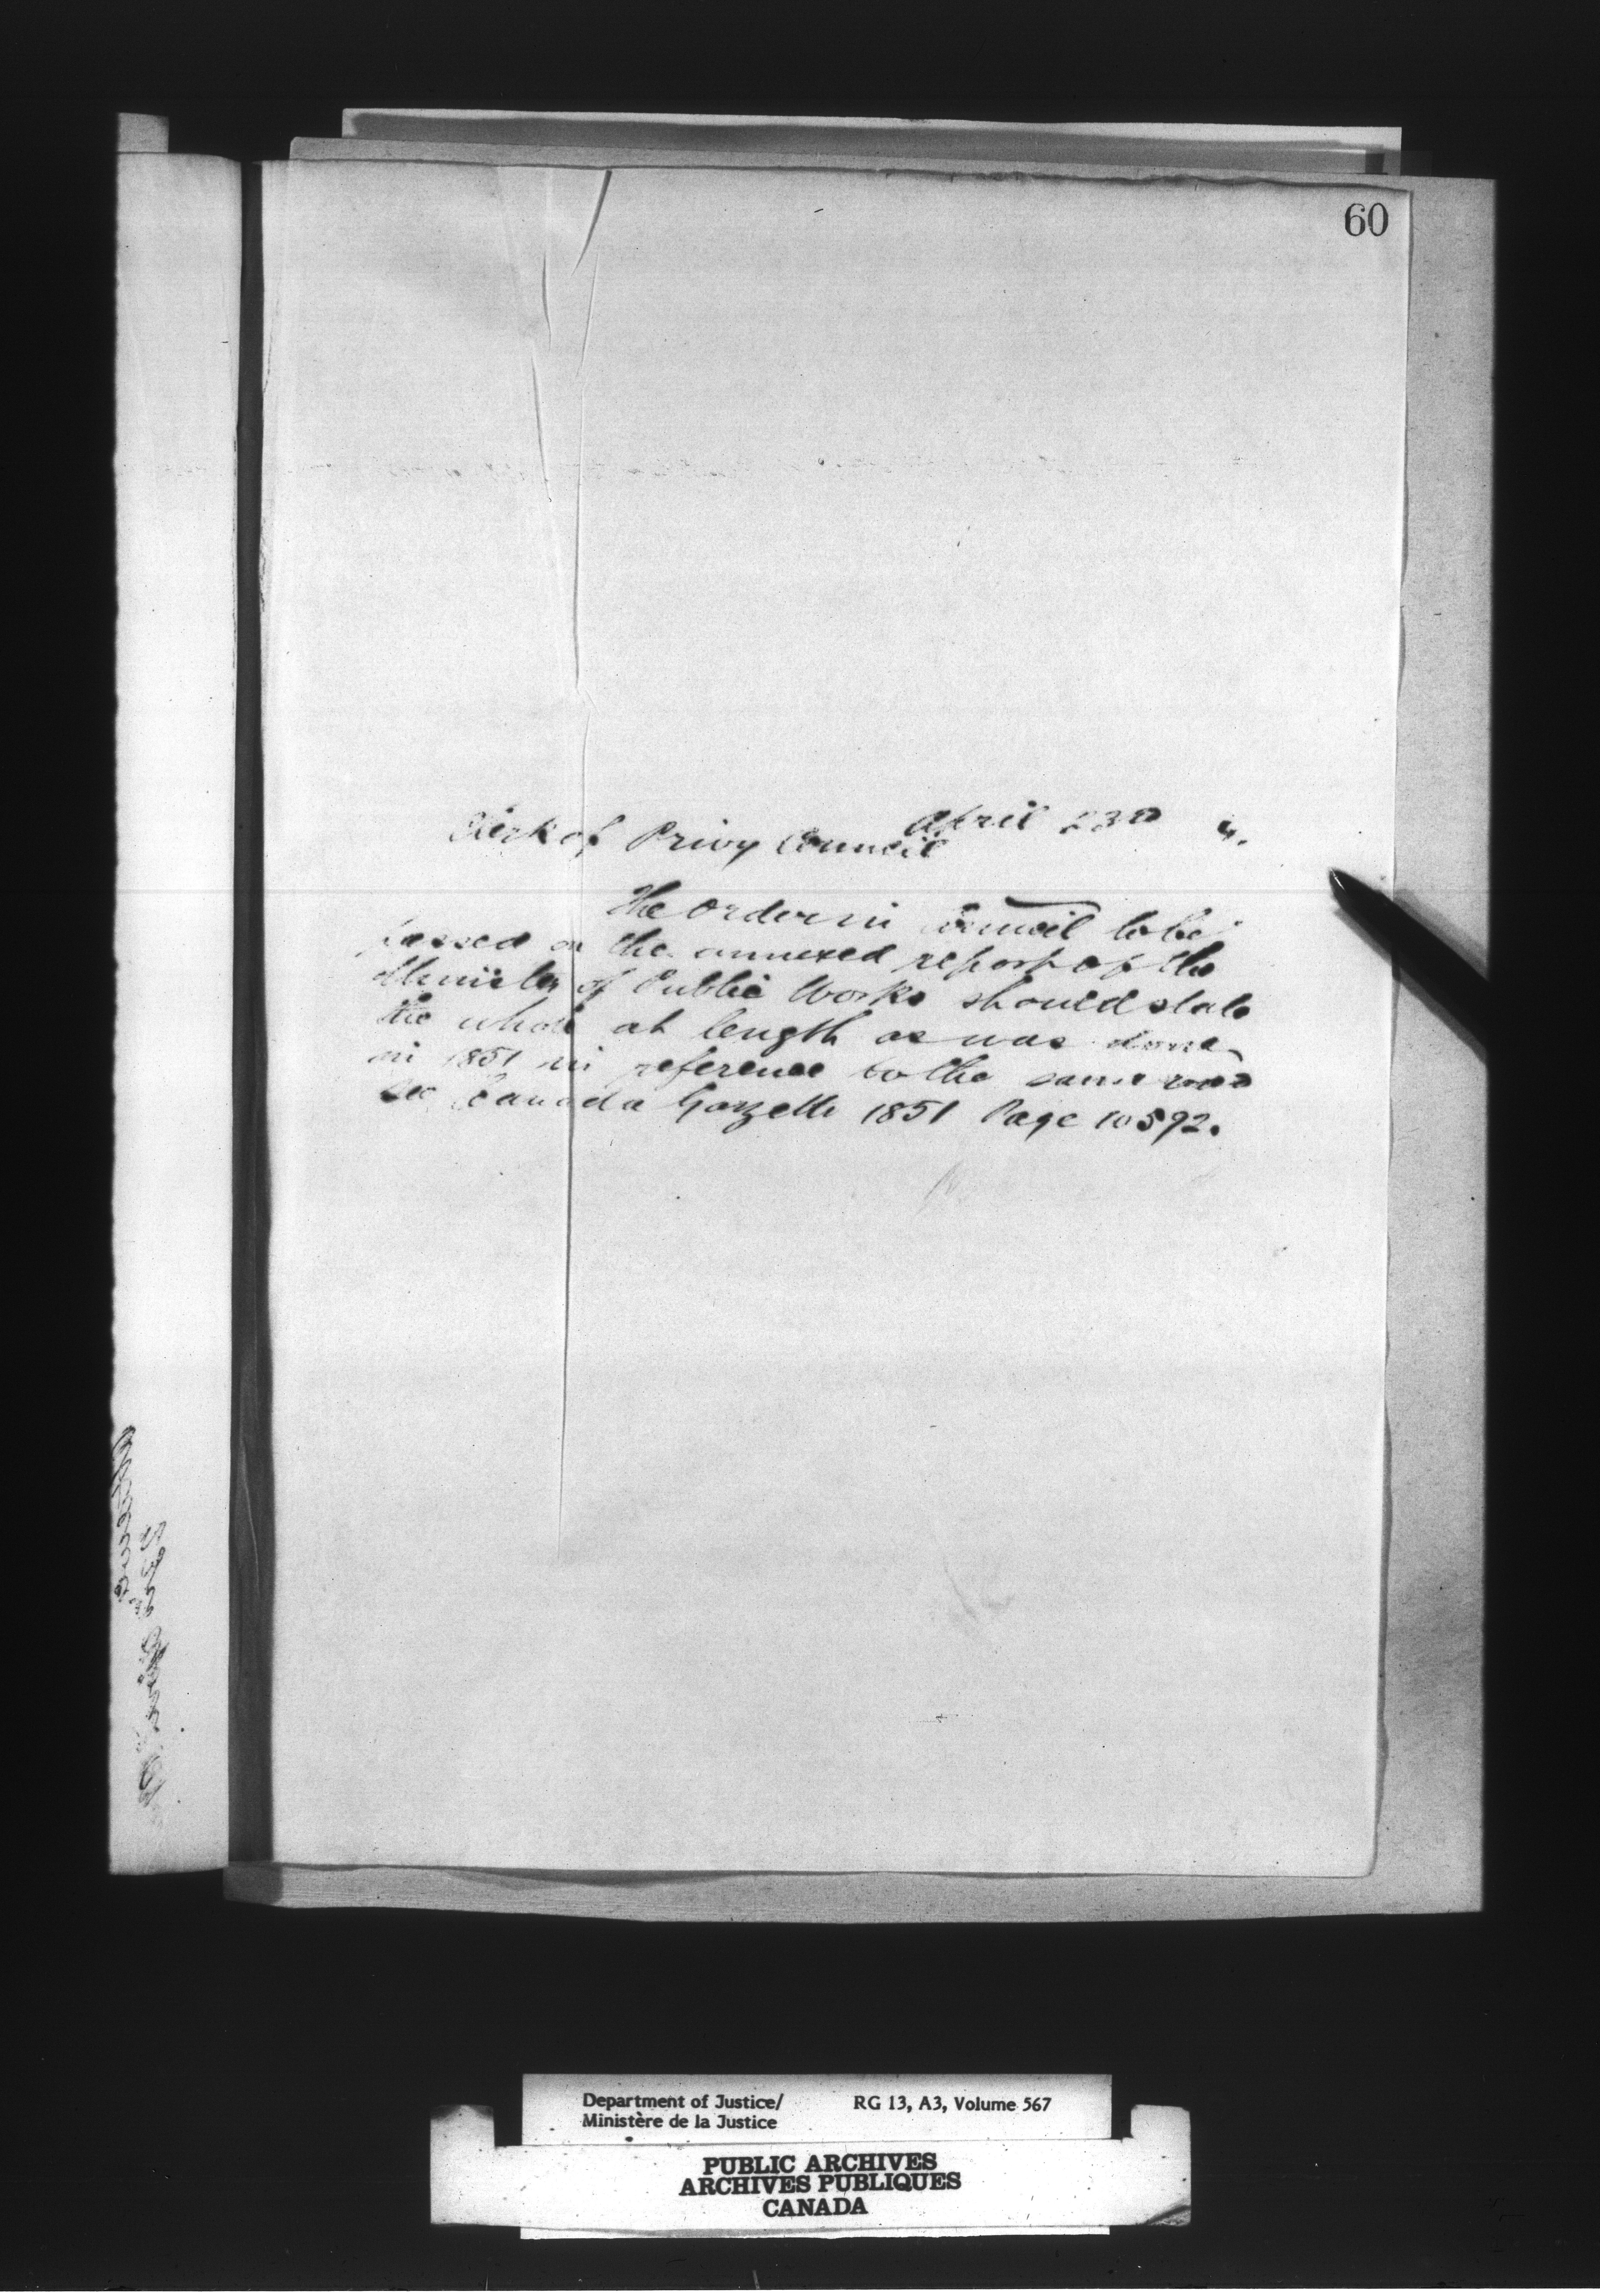 60
April 23rd 4.
Clerk of Privy Council
The Order in Council to be
passed on the annexed report of the
Minister of Public Works should state
the whole at length as was done
in 1851 in reference to the same road
see Canada Gazette 1851 Page 10592.
Department of Justice/ RG 13, A3, Volume 567
Ministère de la Justice
PUBLIC ARCHIVES
ARCHIVES PUBLIQUES
CANADA